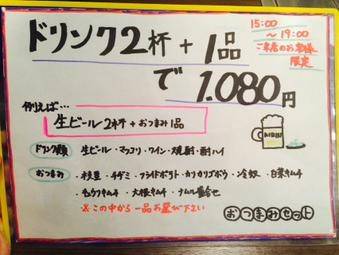 15:00
～19:00
ご来店のお客様
限定
ドリンク2杯+1品
で1.080円
例えば…
生ビール2杯+おつまみ1品
ドリンク類 生ビール・マッコリ・ワイン・焼酎・酎ハイ
おつまみ ・枝豆・チヂミ・フライドポテト・カリカリゴボウ・冷奴・白菜キムチ
・キュウリキムチ・大根キムチ・ナムル盛合せ
※この中から一品お選び下さい
おつまみセット